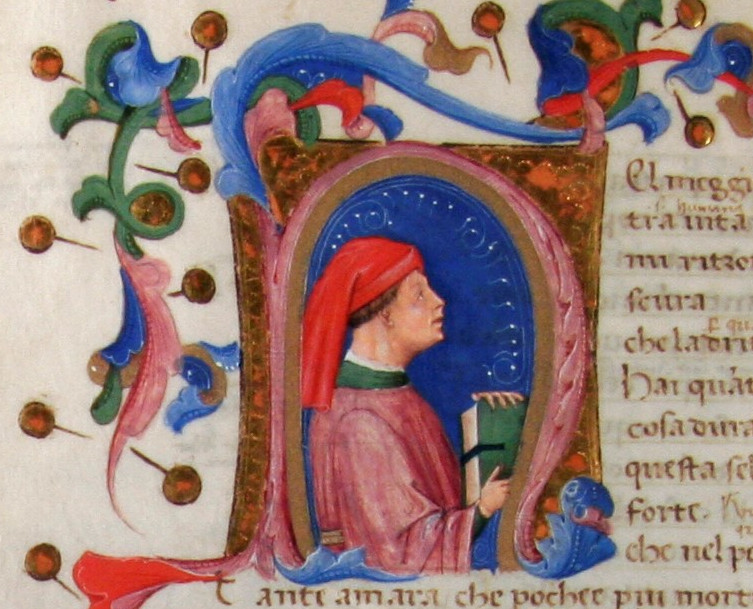 N
El meggi
tra uita
mi ritro
scura
che la dri
hai quā
cosa dura
questa sel
forte.
che nel p
Tante amara che pochee piu mort